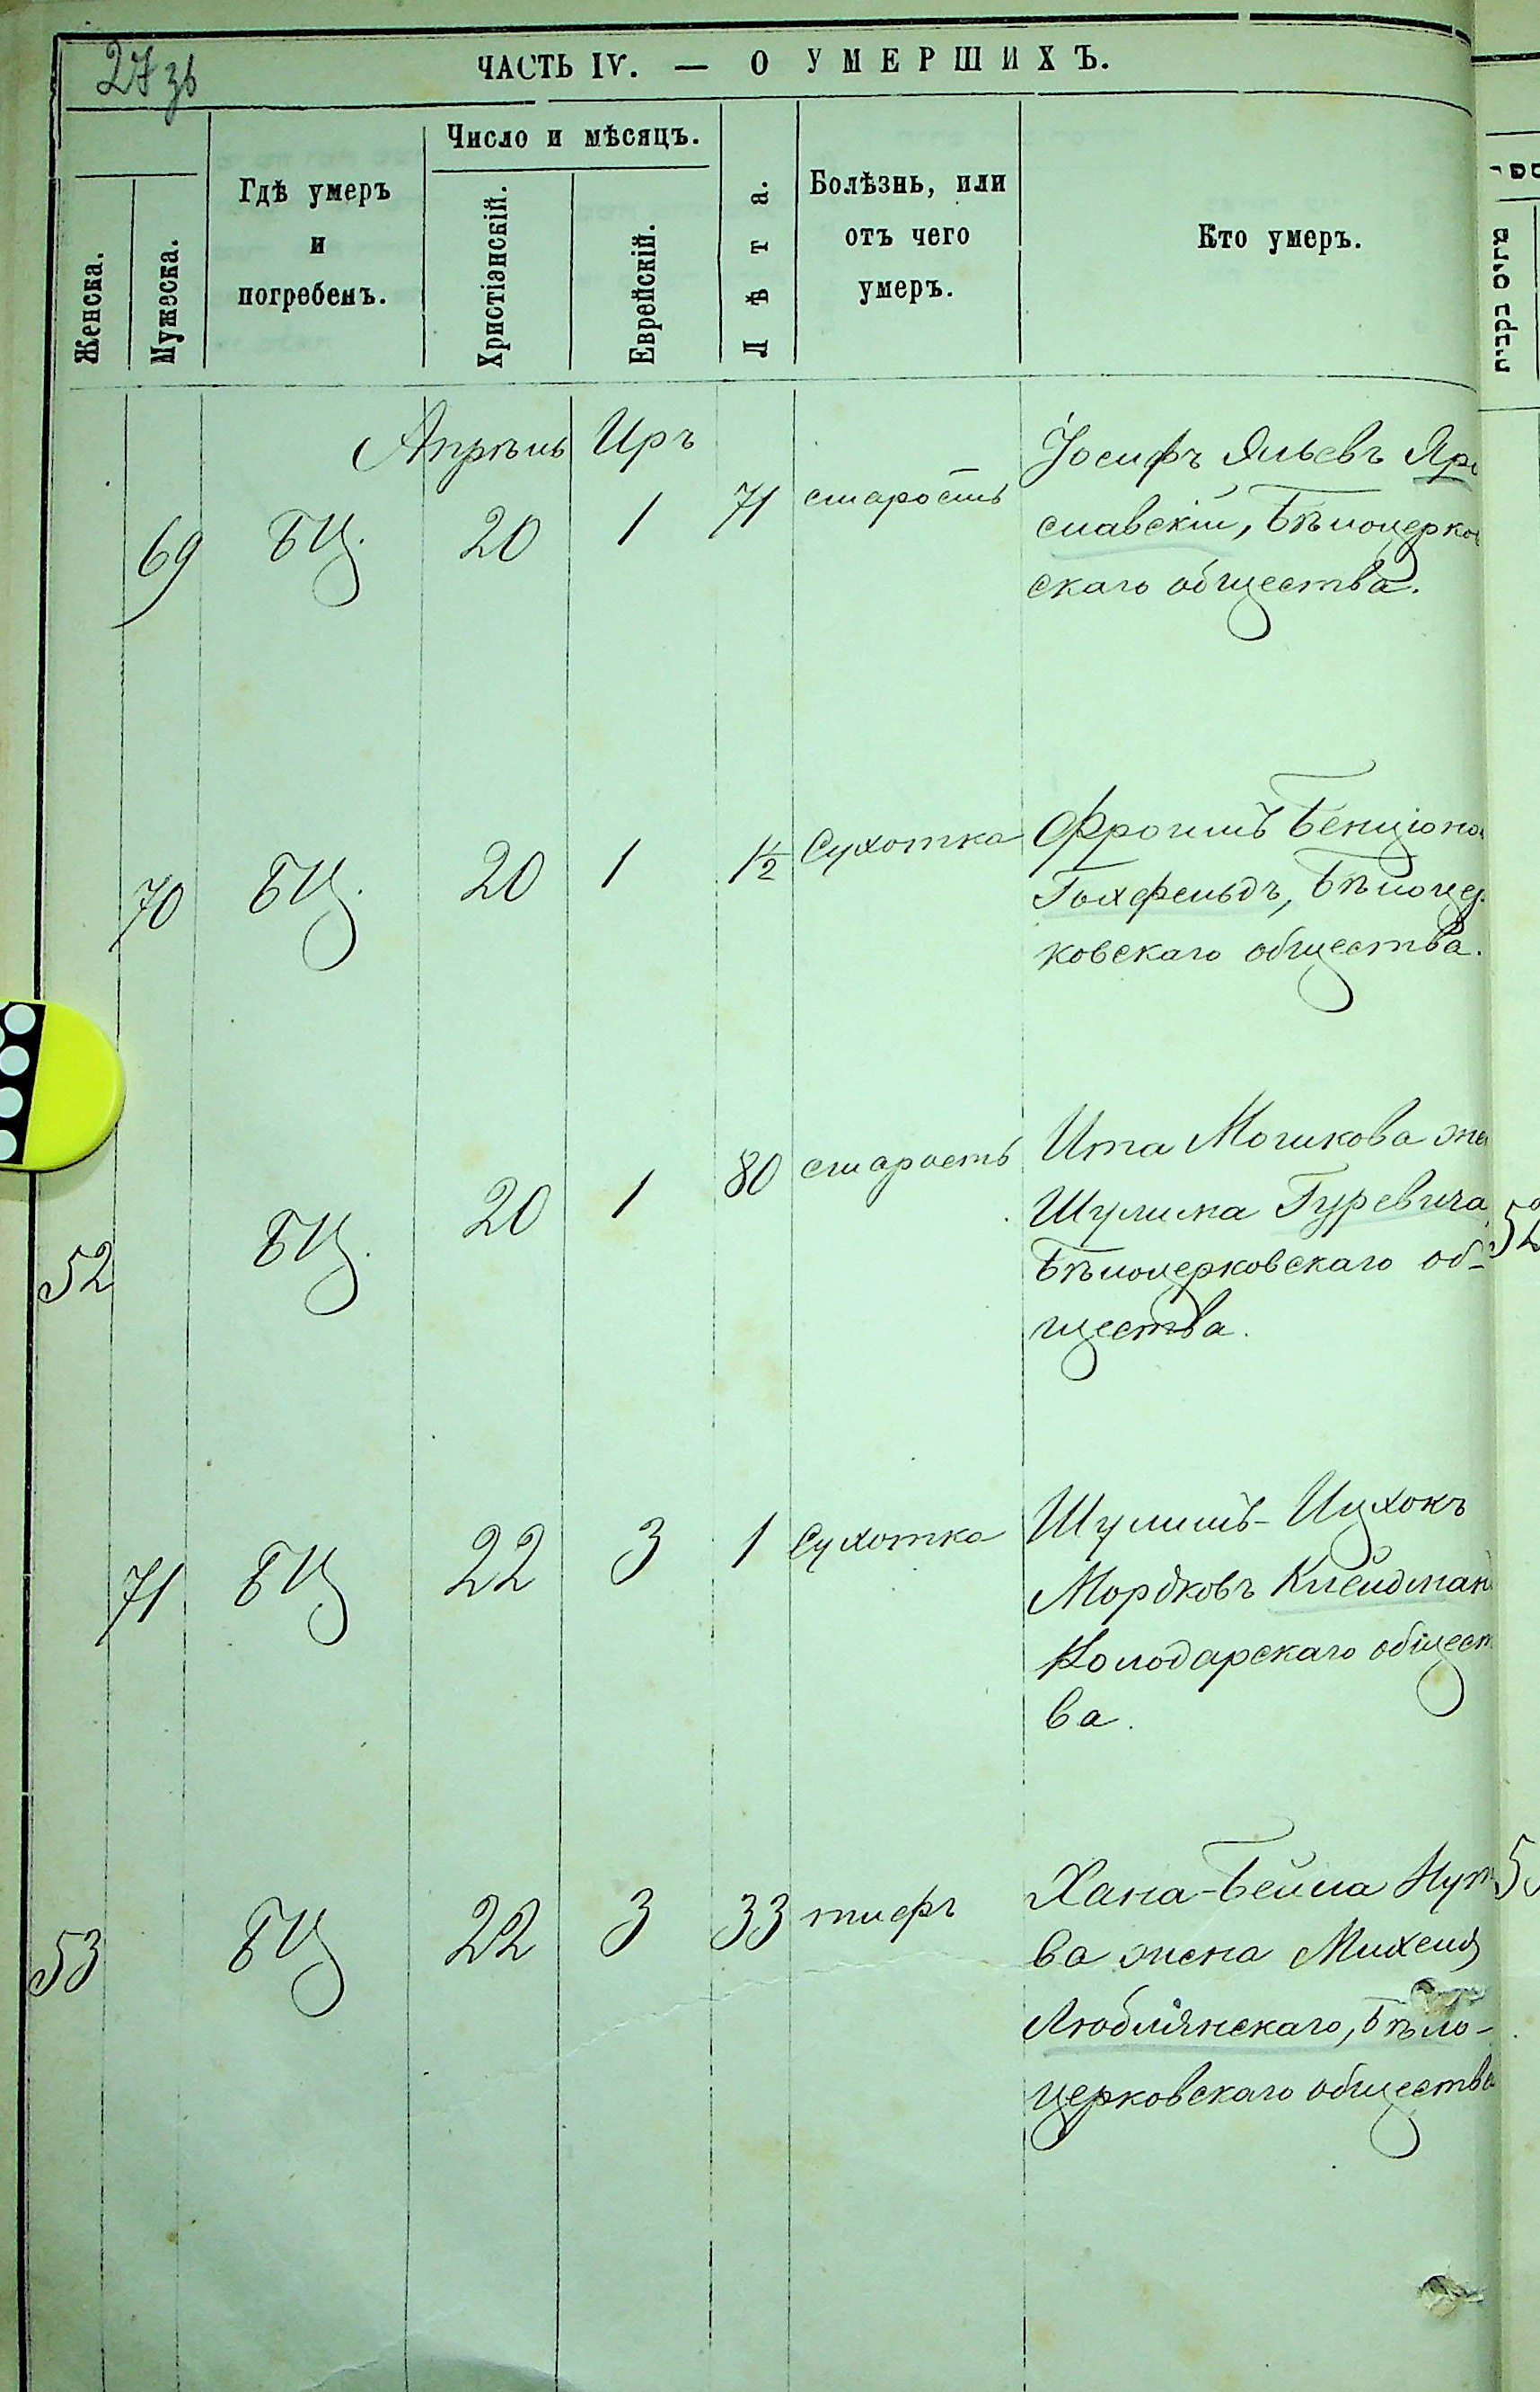 27 зв
ЧАСТЬ IV. — О УМЕРШИХЪ.
Женска.
Мужеска.
Гдѣ умеръ
и
погребенъ.
Число и мѣсяцъ.
Христіанскій.
Еврейскій.
Лѣта.
Болѣзнь, или
отъ чего
умеръ.
Кто умеръ.
Апрѣль Иръ
69 БЦ. 20 1 71 старость
Іосифъ Яльевъ Яро
славскій, Бѣлоцерков
скаго общества.
70 БЦ. 20 1 1½ Сухотка
Фроимъ Бенціоно
Гохфельдъ, Бѣлоцер
ковскаго общества.
52 БЦ. 20 1 80 старость
Ита Мошкова же
Шулима Гуревича
Бѣлоцерковскаго об-
щества.
52
71 БЦ 22 3 1 Сухотка
Шулимъ-Ицхокъ
Мордковъ Клейдман
Володарскаго общест
ва.
53 БЦ 22 3 33 тифъ
Хана-Бейла Нут
ва жена Михеля
Люблянскаго, Бѣло-
церковскаго общества